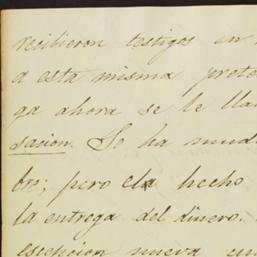 recibieron testigos en
a esta misma prete
ga ahora se le lla
sacion. Se ha mud
bre; pero el hecho
la entrega del dinero.
escepcion nueva